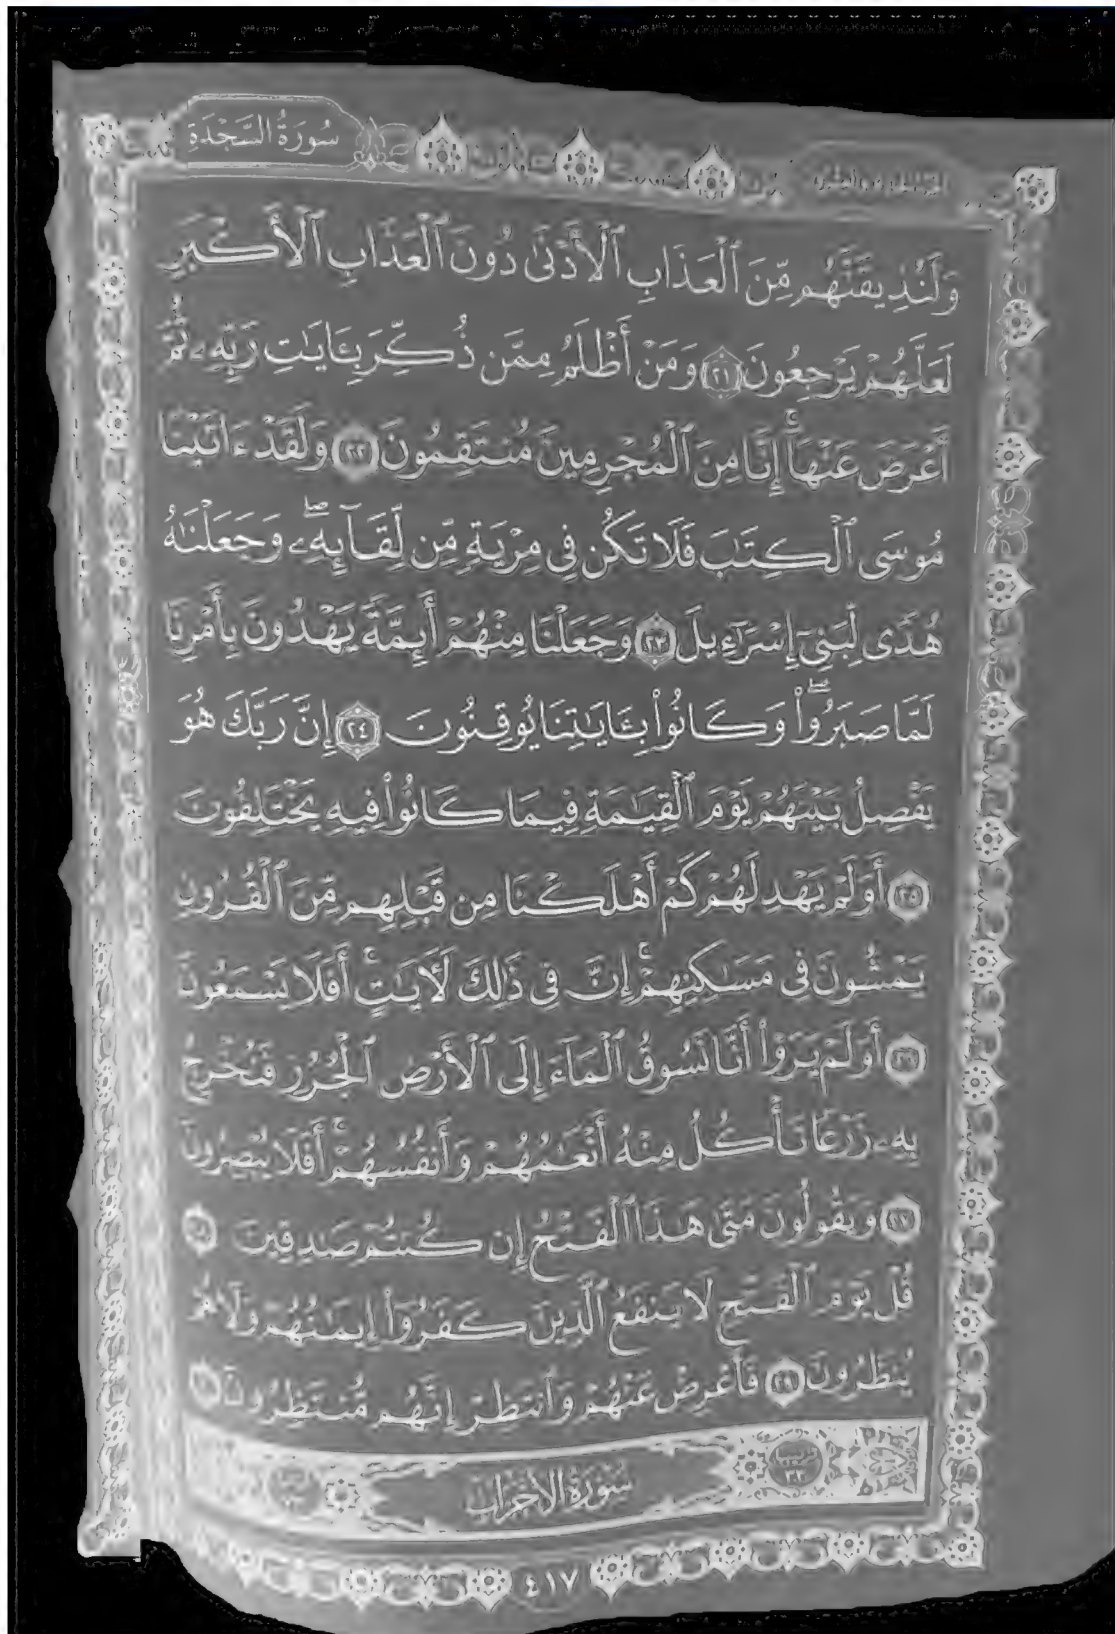 سُورَةُ السَّجْدَةِ
الجزء الحادي والعشرون
وَلَنُذِيقَنَّهُم مِّنَ ٱلْعَذَابِ ٱلْأَدْنَىٰ دُونَ ٱلْعَذَابِ ٱلْأَكْبَرِ
لَعَلَّهُمْ يَرْجِعُونَ ٢١ وَمَنْ أَظْلَمُ مِمَّن ذُكِّرَ بِـَٔايَٰتِ رَبِّهِۦ ثُمَّ
أَعْرَضَ عَنْهَآ ۚ إِنَّا مِنَ ٱلْمُجْرِمِينَ مُنتَقِمُونَ ٢٢ وَلَقَدْ ءَاتَيْنَا
مُوسَى ٱلْكِتَٰبَ فَلَا تَكُن فِى مِرْيَةٍ مِّن لِّقَآئِهِۦ ۖ وَجَعَلْنَٰهُ
هُدًى لِّبَنِىٓ إِسْرَٰٓءِيلَ ٢٣ وَجَعَلْنَا مِنْهُمْ أَئِمَّةً يَهْدُونَ بِأَمْرِنَا
لَمَّا صَبَرُوا۟ ۖ وَكَانُوا۟ بِـَٔايَٰتِنَا يُوقِنُونَ ٢٤ إِنَّ رَبَّكَ هُوَ
يَفْصِلُ بَيْنَهُمْ يَوْمَ ٱلْقِيَٰمَةِ فِيمَا كَانُوا۟ فِيهِ يَخْتَلِفُونَ
٢٥ أَوَلَمْ يَهْدِ لَهُمْ كَمْ أَهْلَكْنَا مِن قَبْلِهِم مِّنَ ٱلْقُرُونِ
يَمْشُونَ فِى مَسَٰكِنِهِمْ ۚ إِنَّ فِى ذَٰلِكَ لَـَٔايَٰتٍ ۖ أَفَلَا يَسْمَعُونَ
٢٦ أَوَلَمْ يَرَوْا۟ أَنَّا نَسُوقُ ٱلْمَآءَ إِلَى ٱلْأَرْضِ ٱلْجُرُزِ فَنُخْرِجُ
بِهِۦ زَرْعًا تَأْكُلُ مِنْهُ أَنْعَٰمُهُمْ وَأَنفُسُهُمْ ۖ أَفَلَا يُبْصِرُونَ
٢٧ وَيَقُولُونَ مَتَىٰ هَٰذَا ٱلْفَتْحُ إِن كُنتُمْ صَٰدِقِينَ ٢٨
قُلْ يَوْمَ ٱلْفَتْحِ لَا يَنفَعُ ٱلَّذِينَ كَفَرُوٓا۟ إِيمَٰنُهُمْ وَلَا هُمْ
يُنظَرُونَ ٢٩ فَأَعْرِضْ عَنْهُمْ وَٱنتَظِرْ إِنَّهُم مُّنتَظِرُونَ ٣٠
ترتيبها ٣٣
سُورَةُ الأَحْزَابِ
٤١٧